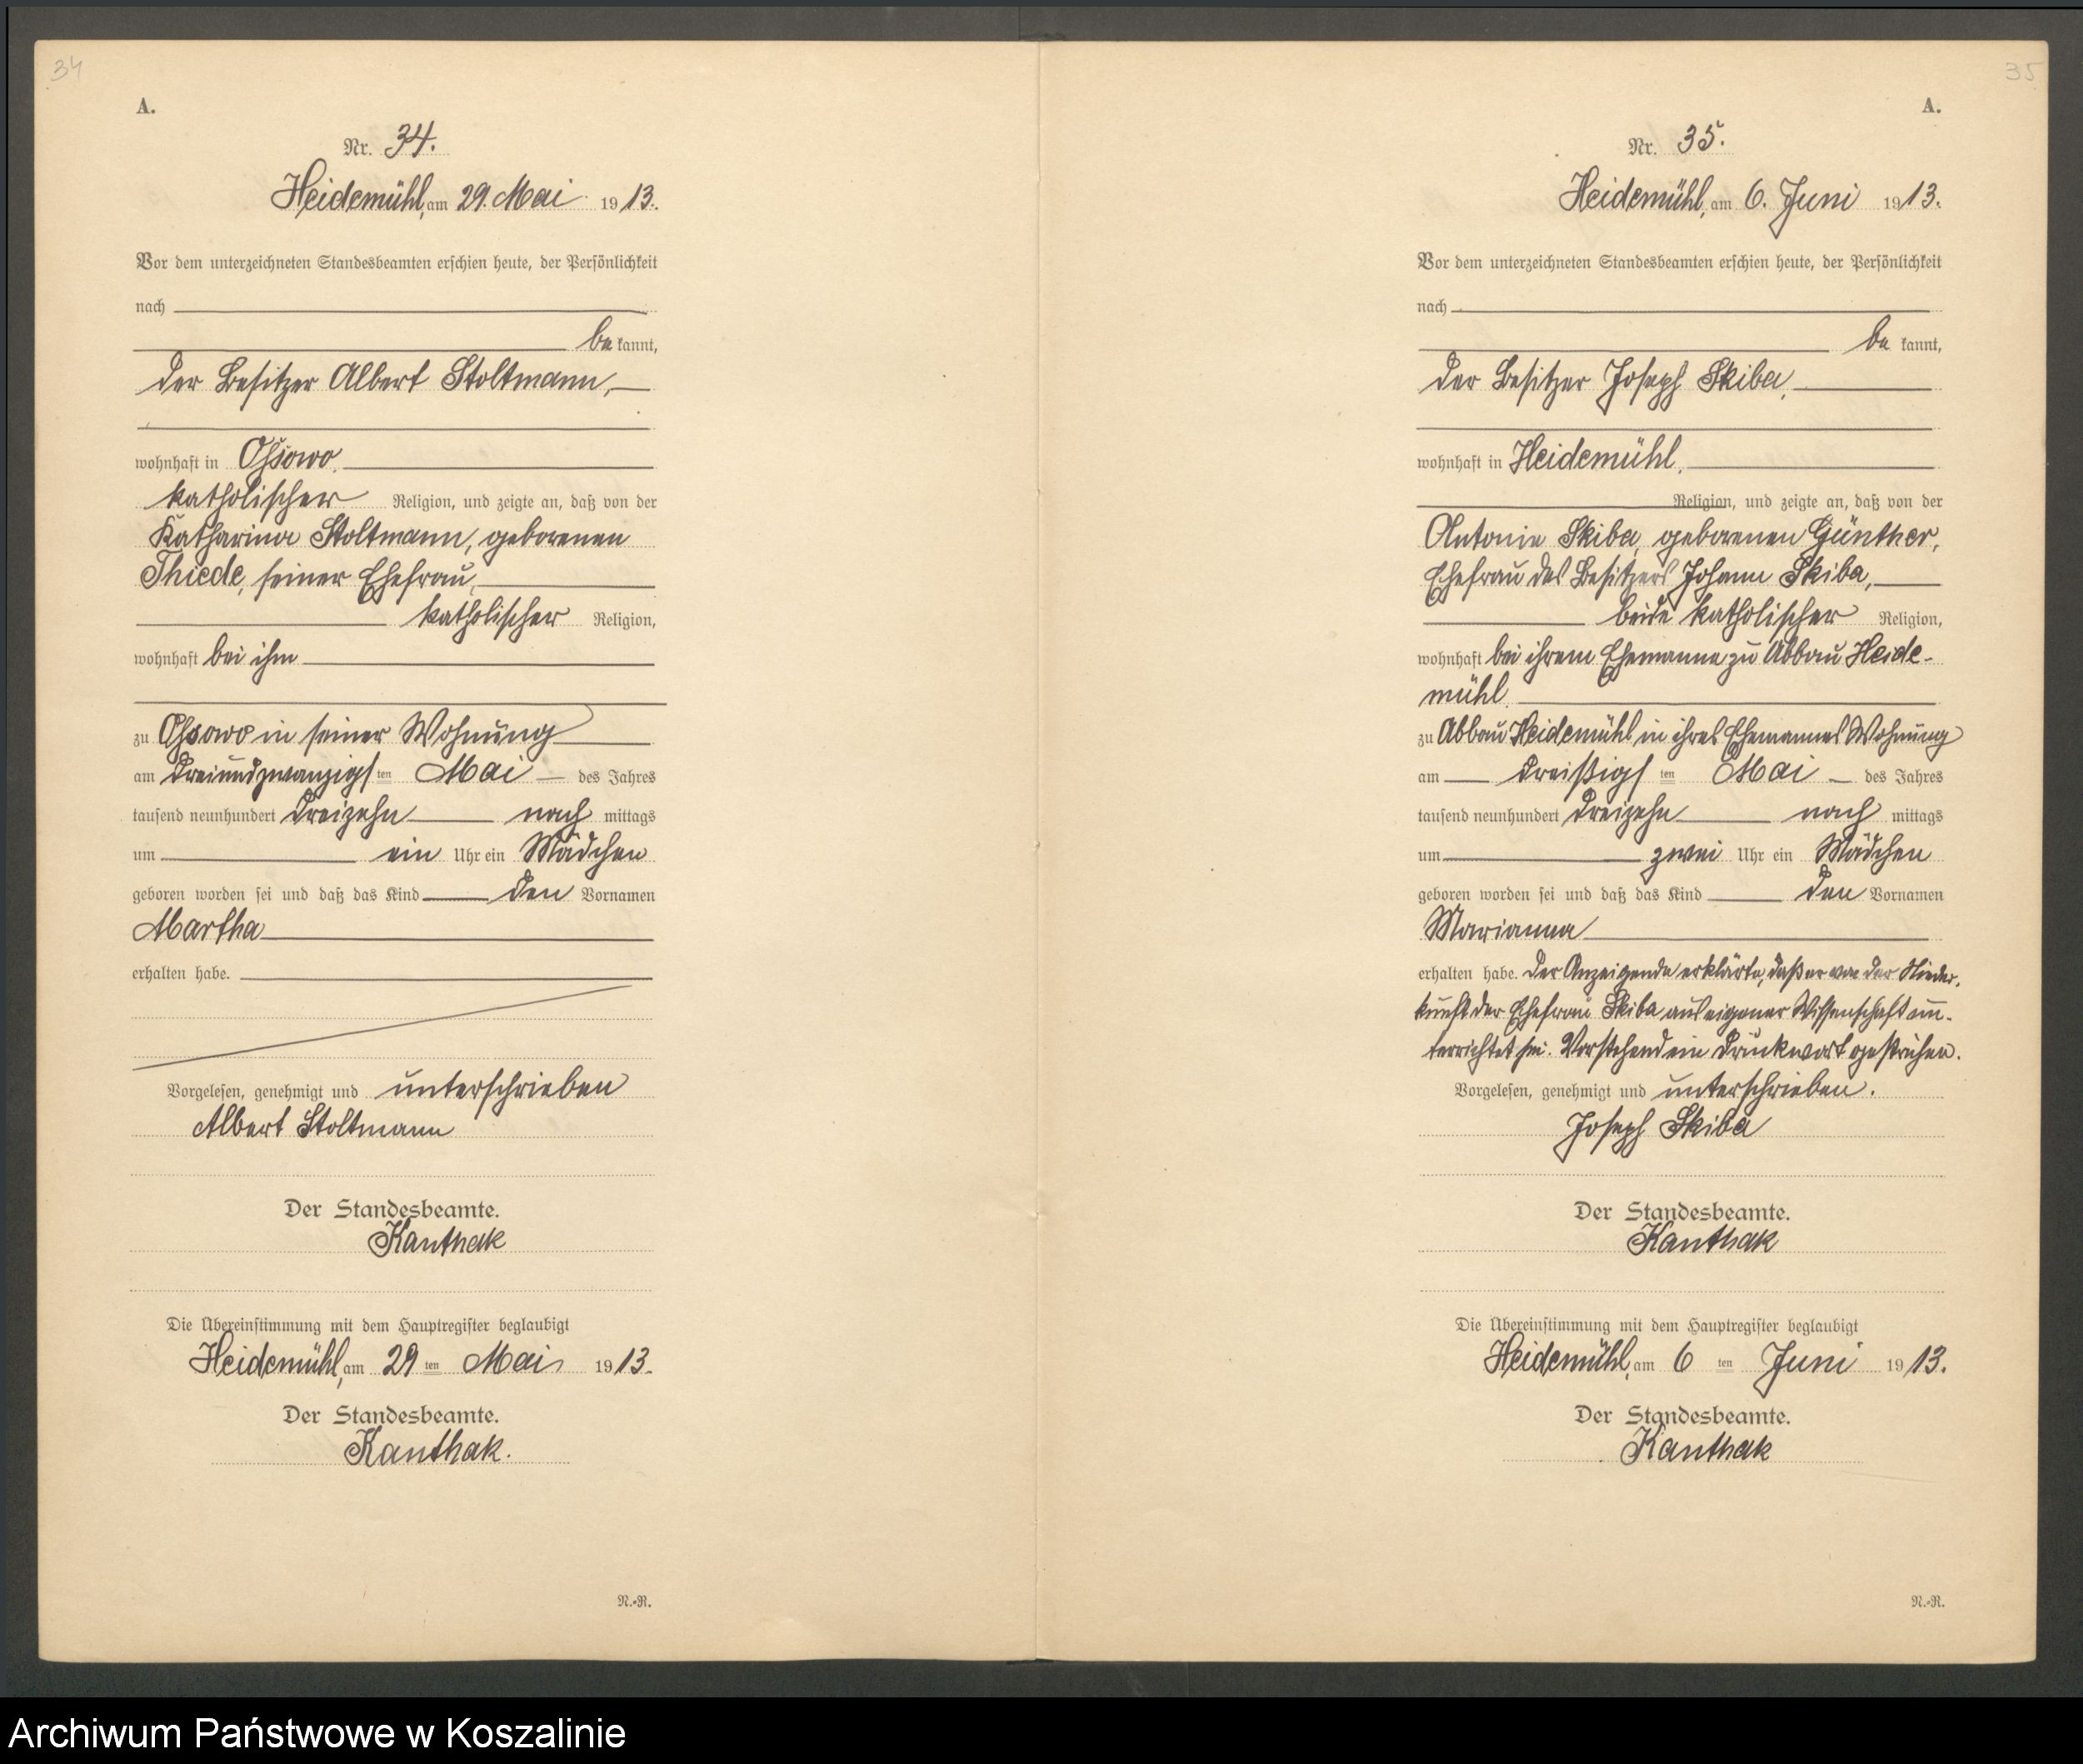 34
A.
Nr. 34.
Heidemühl, am 29. Mai 1913.
Vor dem unterzeichneten Standesbeamten erschien heute, der Persönlichkeit
nach
bekannt,
der Besitzer Albert Stoltmann,
wohnhaft in Ossowo,
katholischer Religion, und zeigte an, daß von der
Katharina Stoltmann, geborenen
Thiede, seiner Ehefrau,
katholischer Religion,
wohnhaft bei ihm
zu Ossowo in seiner Wohnung
am dreiundzwanzigsten Mai des Jahres
tausend neunhundert dreizehn nachmittags
um ein Uhr ein Mädchen
geboren worden sei und daß das Kind den Vornamen
Martha
erhalten habe.
Vorgelesen, genehmigt und unterschrieben
Albert Stoltmann
Der Standesbeamte.
Kanthak
Die Übereinstimmung mit dem Hauptregister beglaubigt
Heidemühl, am 29ten Mai 1913.
Der Standesbeamte.
Kanthak.
N.-R.
35
A.
Nr. 35.
Heidemühl, am 6. Juni 1913.
Vor dem unterzeichneten Standesbeamten erschien heute, der Persönlichkeit
nach
bekannt,
der Besitzer Joseph Skiba,
wohnhaft in Heidemühl,
Religion, und zeigte an, daß von der
Antonie Skiba, geborenen Günther,
Ehefrau des Besitzers Johann Skiba,
beide katholischer Religion,
wohnhaft bei ihrem Ehemanne zu Abbau Heide-
mühl
zu Abbau Heidemühl in ihres Ehemannes Wohnung
am dreißigsten Mai des Jahres
tausend neunhundert dreizehn nachmittags
um zwei Uhr ein Mädchen
geboren worden sei und daß das Kind den Vornamen
Marianna
erhalten habe. Der Anzeigende erklärte, daß er von der Nieder-
kunft der Ehefrau Skiba aus eigener Wissenschaft un-
terrichtet sei. Vorstehend ein Druckwort gestrichen.
Vorgelesen, genehmigt und unterschrieben.
Joseph Skiba
Der Standesbeamte.
Kanthak
Die Übereinstimmung mit dem Hauptregister beglaubigt
Heidemühl, am 6ten Juni 1913.
Der Standesbeamte.
Kanthak
N.-R.
Archiwum Państwowe w Koszalinie